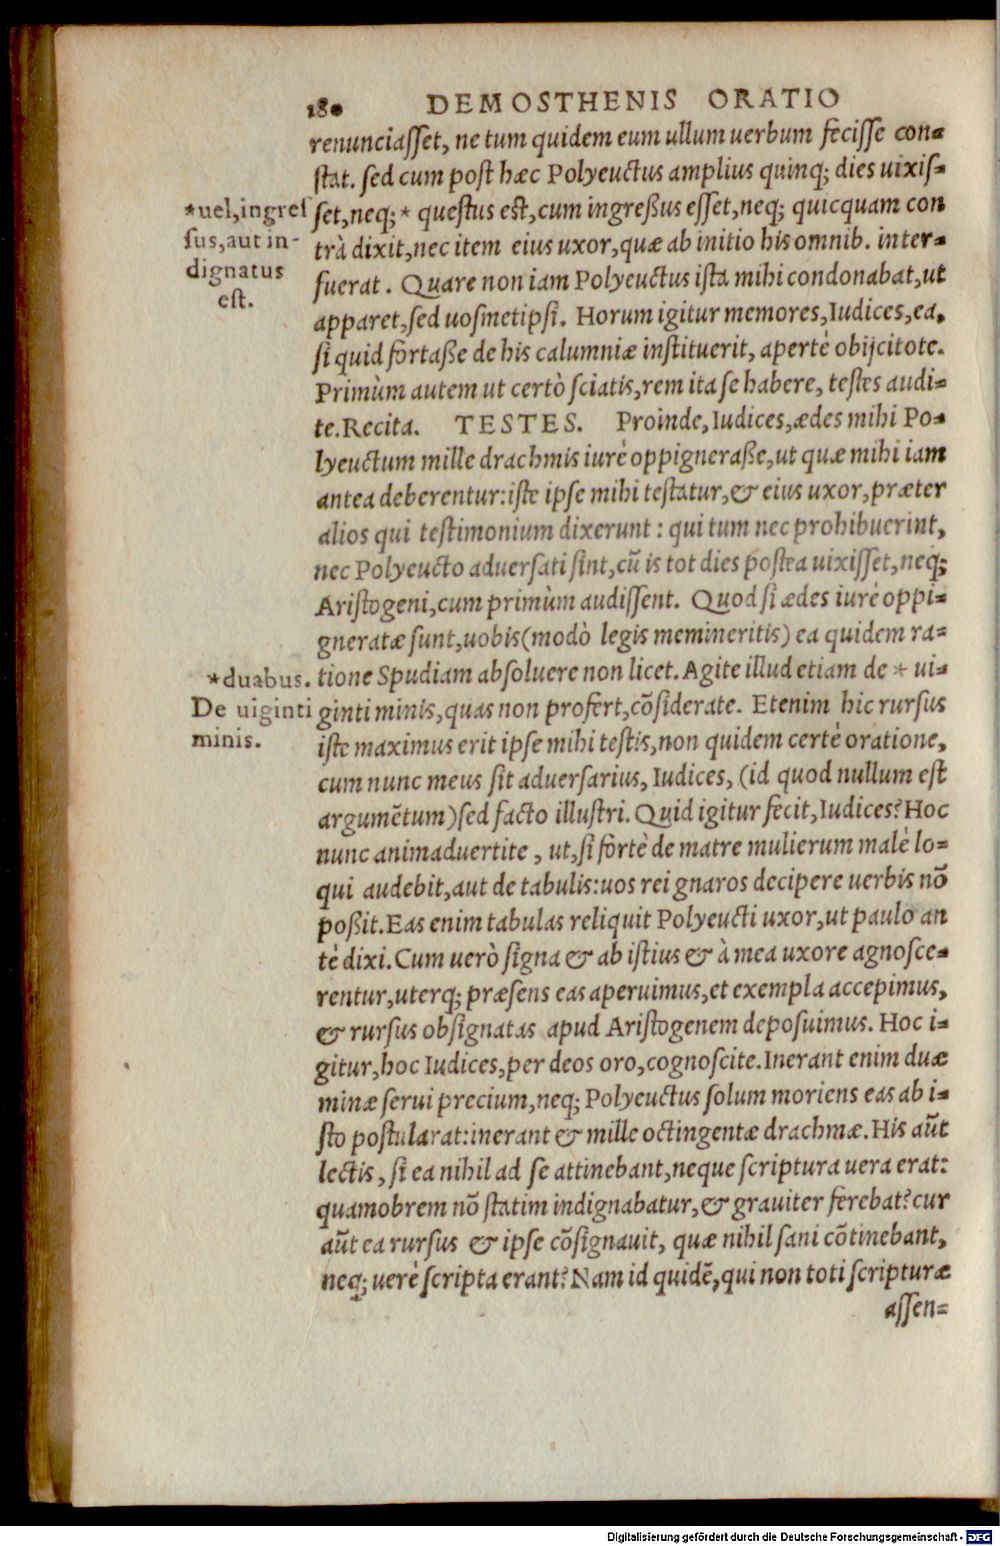 180 DEMOSTHENIS ORATIO
renunciasset, ne tum quidem eum ullum uerbum fecisse con=
stat. sed cum post hæc Polyeuctus amplius quinq; dies uixis=
set, neq; * questus est, cum ingreßus esset, neq; quicquam con
trà dixit, nec item eius uxor, quæ ab initio his omnib. inter=
fuerat. Quare non iam Polyeuctus ista mihi condonabat, ut
apparet, sed uosmetipsi. Horum igitur memores, Iudices, ea,
si quid fortaße de his calumniæ instituerit, apertè obijcitote.
Primùm autem ut certò sciatis, rem ita se habere, testes audi=
te. Recita. TESTES. Proinde, Iudices, ædes mihi Po=
lyeuctum mille drachmis iurè oppigneraße, ut quæ mihi iam
antea deberentur: iste ipse mihi testatur, & eius uxor, præter
alios qui testimonium dixerunt: qui tum nec prohibuerint,
nec Polyeucto aduersati sint, cũ is tot dies postea uixisset, neq;
Aristogeni, cum primùm audissent. Quod si ædes iurè oppi=
gneratæ sunt, uobis (modò legis memineritis) ea quidem ra=
tione Spudiam absoluere non licet. Agite illud etiam de * ui=
ginti minis, quas non profert, cõsiderate. Etenim hic rursus
iste maximus erit ipse mihi testis, non quidem certè oratione,
cum nunc meus sit aduersarius, Iudices, (id quod nullum est
argumẽtum) sed facto illustri. Quid igitur fecit, Iudices? Hoc
nunc animaduertite, ut, si fortè de matre mulierum malè lo=
qui audebit, aut de tabulis: uos rei gnaros decipere uerbis nõ
poßit. Eas enim tabulas reliquit Polyeucti uxor, ut paulo an
tè dixi. Cum uerò signa & ab istius & à mea uxore agnosce=
rentur, uterq; præsens eas aperuimus, et exempla accepimus,
& rursus obsignatas apud Aristogenem deposuimus. Hoc i=
gitur, hoc Iudices, per deos oro, cognoscite. Inerant enim duæ
minæ serui precium, neq; Polyeuctus solum moriens eas ab i=
sto postularat: inerant & mille octingentæ drachmæ. His aũt
lectis, si ea nihil ad se attinebant, neque scriptura uera erat:
quamobrem nõ statim indignabatur, & grauiter ferebat? cur
aũt ea rursus & ipse cõsignauit, quæ nihil sani cõtinebant,
neq; uerè scripta erant? Nam id quidẽ, qui non toti scripturæ
assen=
*uel, ingres
sus, aut in-
dignatus
est.
*duabus.
De uiginti
minis.
Digitalisierung gefördert durch die Deutsche Forschungsgemeinschaft - DFG